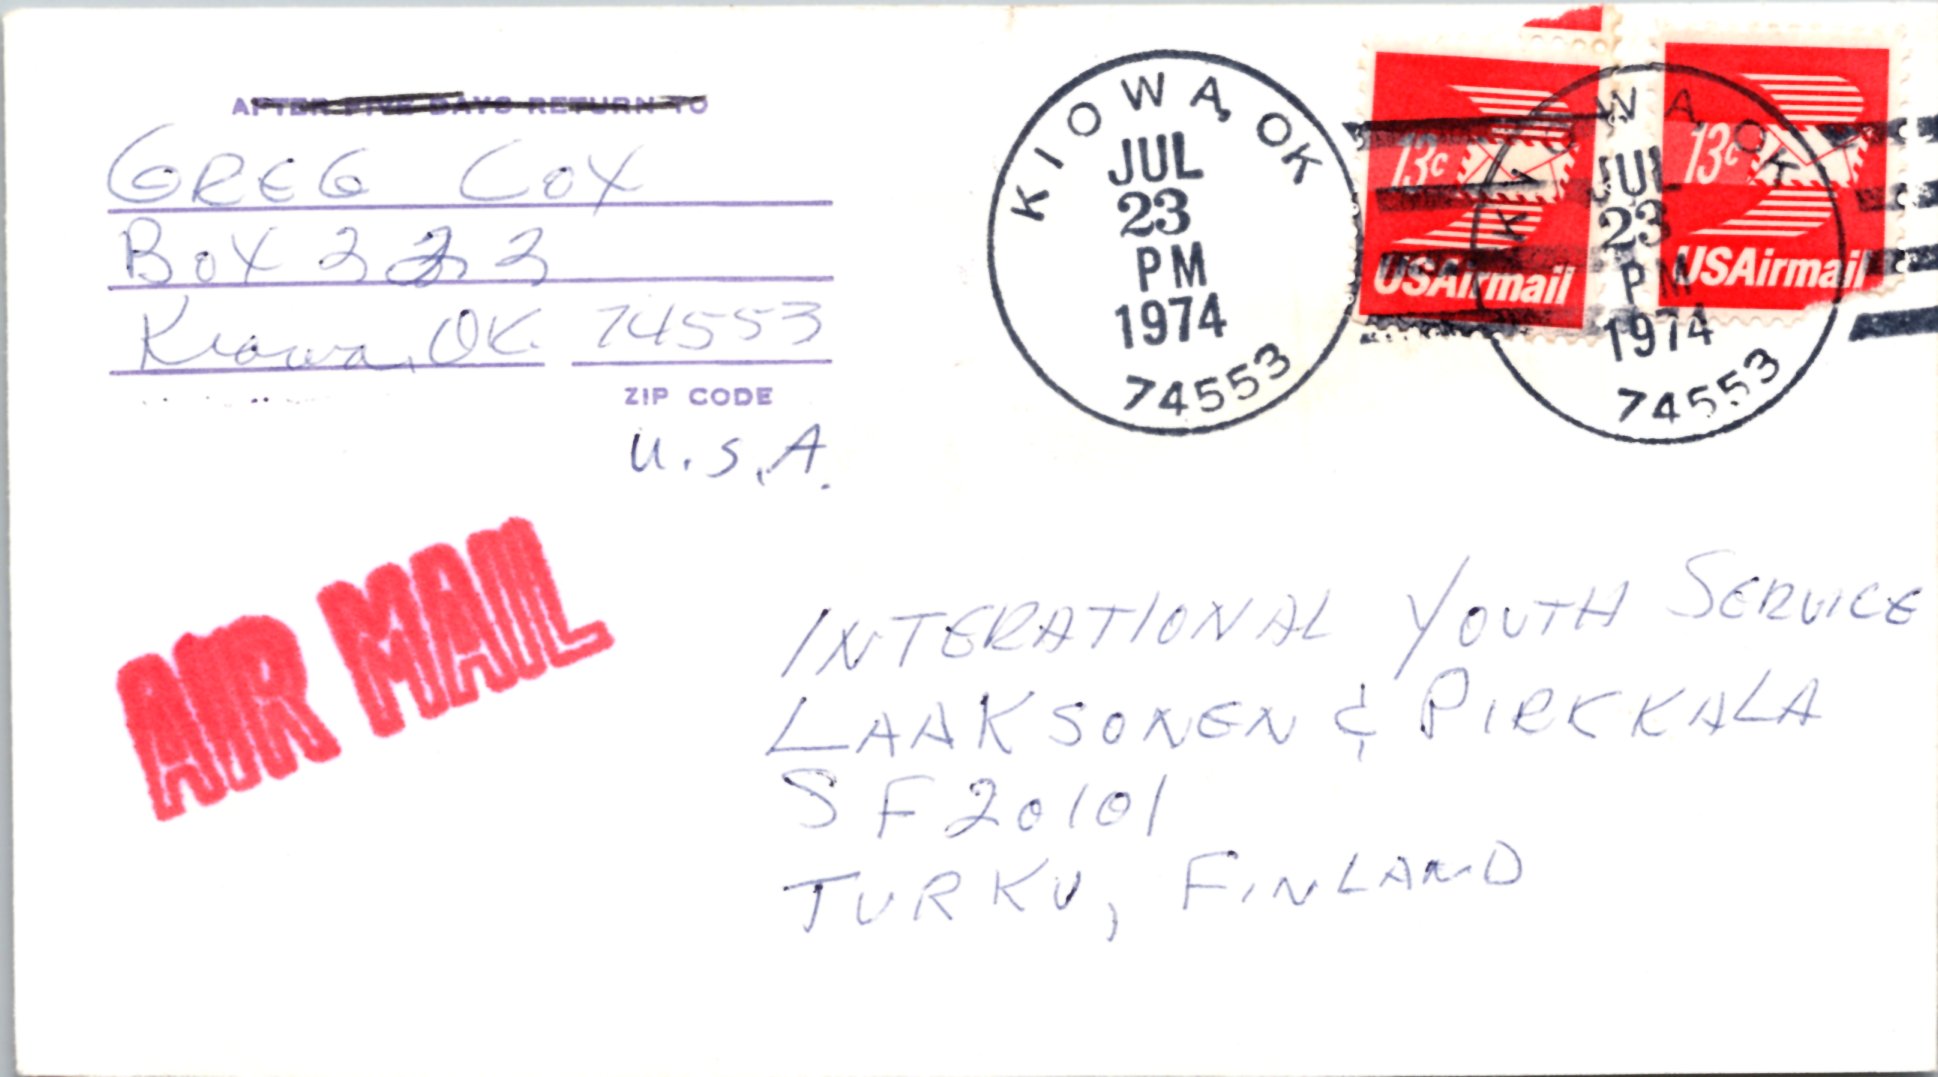 AFTER FIVE DAYS RETURN TO
GREG COX
BOX 222
Kiowa, OK. 74553
ZIP CODE
U.S.A.
KIOWA, OK
JUL
23
PM
1974
74553
13c
USAirmail
KIOWA, OK
JUL
23
PM
1974
74553
13c
USAirmail
AIR MAIL
INTERATIONAL YOUTH SERVICE
LAAKSONEN & PIRKKALA
SF 20101
TURKU, FINLAND